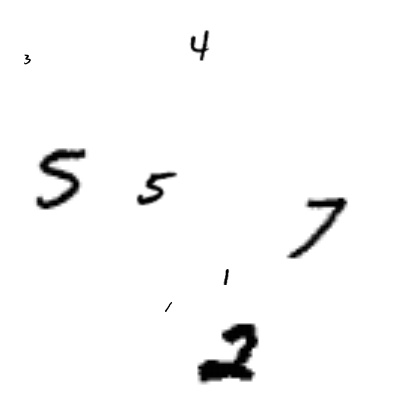 4
3
5 5
7
1
1
2